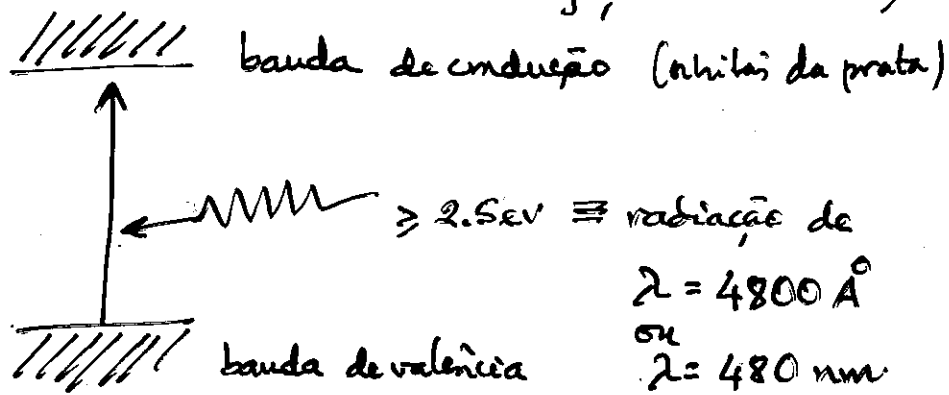 banda de condução (orbitais da prata)
≥ 2.5eV ≡ radiação de
λ = 4800 Å
ou
banda de valência λ = 480 nm.